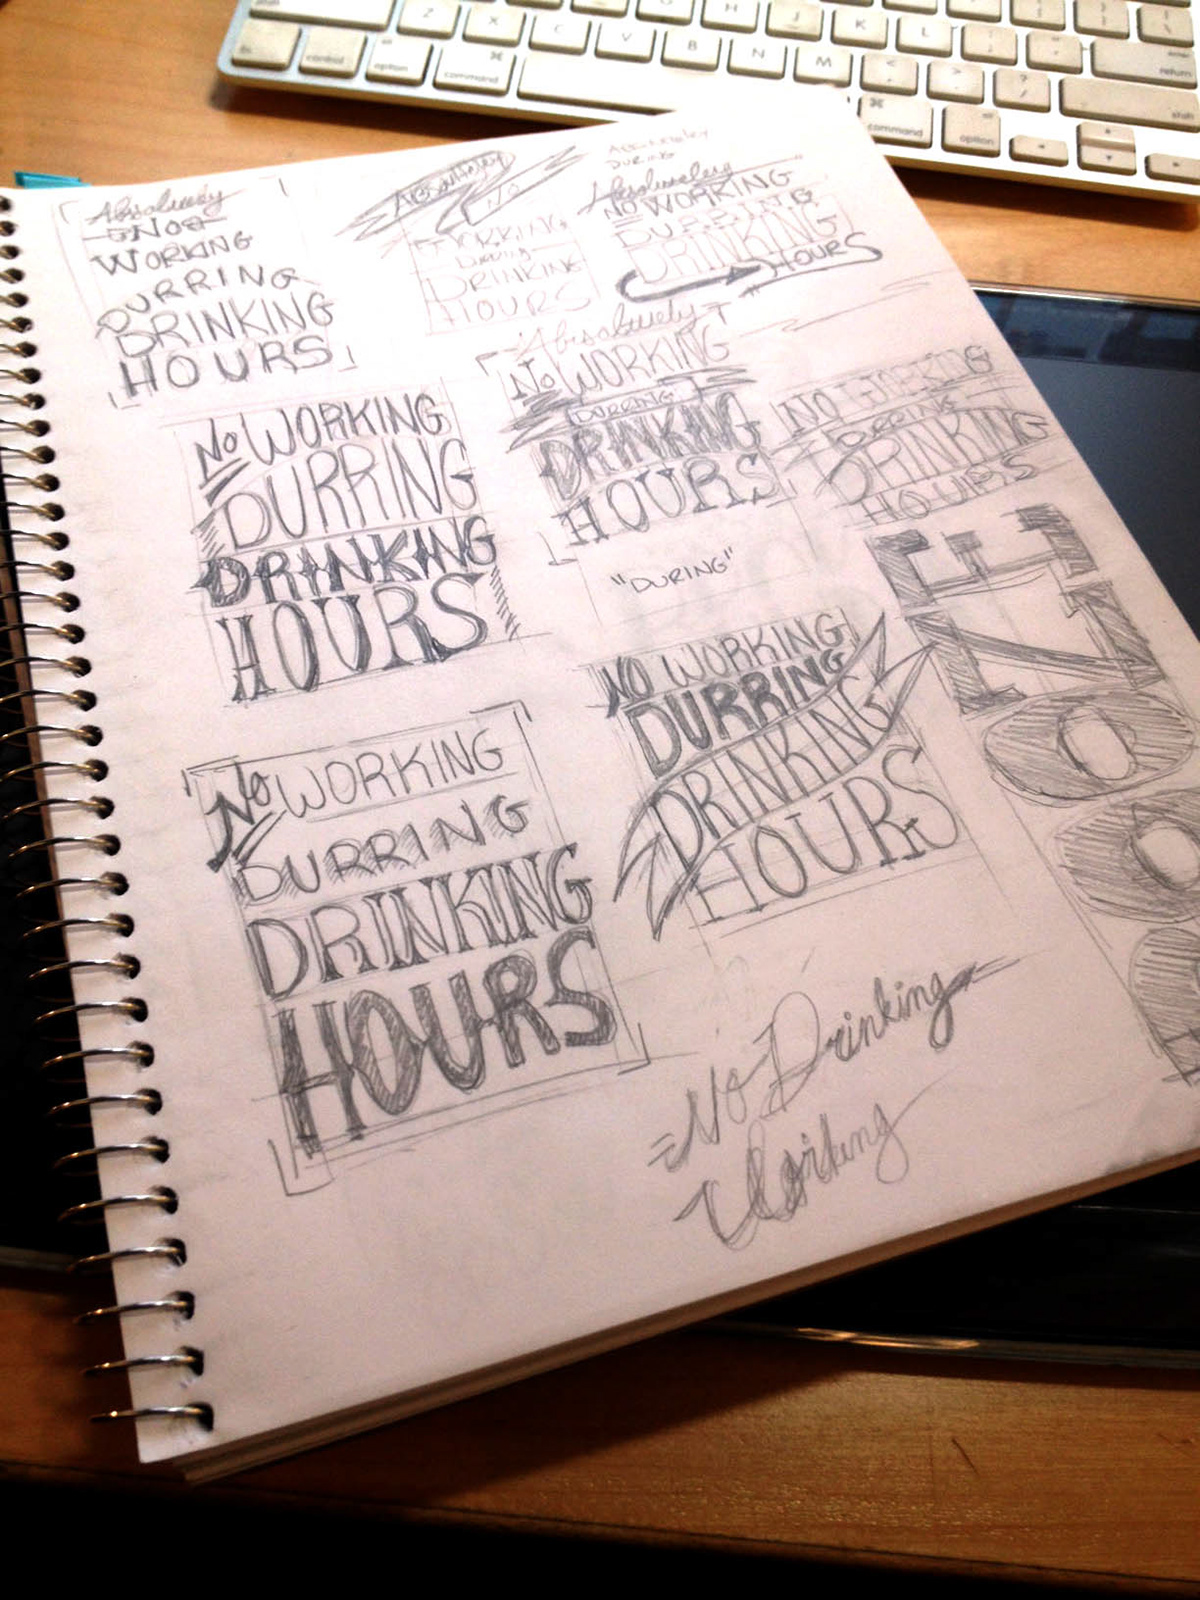 Absolutely
No
WORKING
DURRING
DRINKING
HOURS
Absolutely
NO
WORKING
During
DRINKING
HOURS
ABSOLUTELY
DURING
Absolutely
NO WORKING
DURRING
DRINKING
HOURS
Absolutely
No WORKING
DURRING
DRINKING
HOURS
"DURING"
No WORKING
DURRING
DRINKING
HOURS
NO WORKING
DURRING
DRINKING
HOURS
No WORKING
DURRING
DRINKING
HOURS
NO WORKING
DURRING
DRINKING
HOURS
No Drinking
Working
Z X C V B N M
H J K L
fn control option command
command option
return
shift